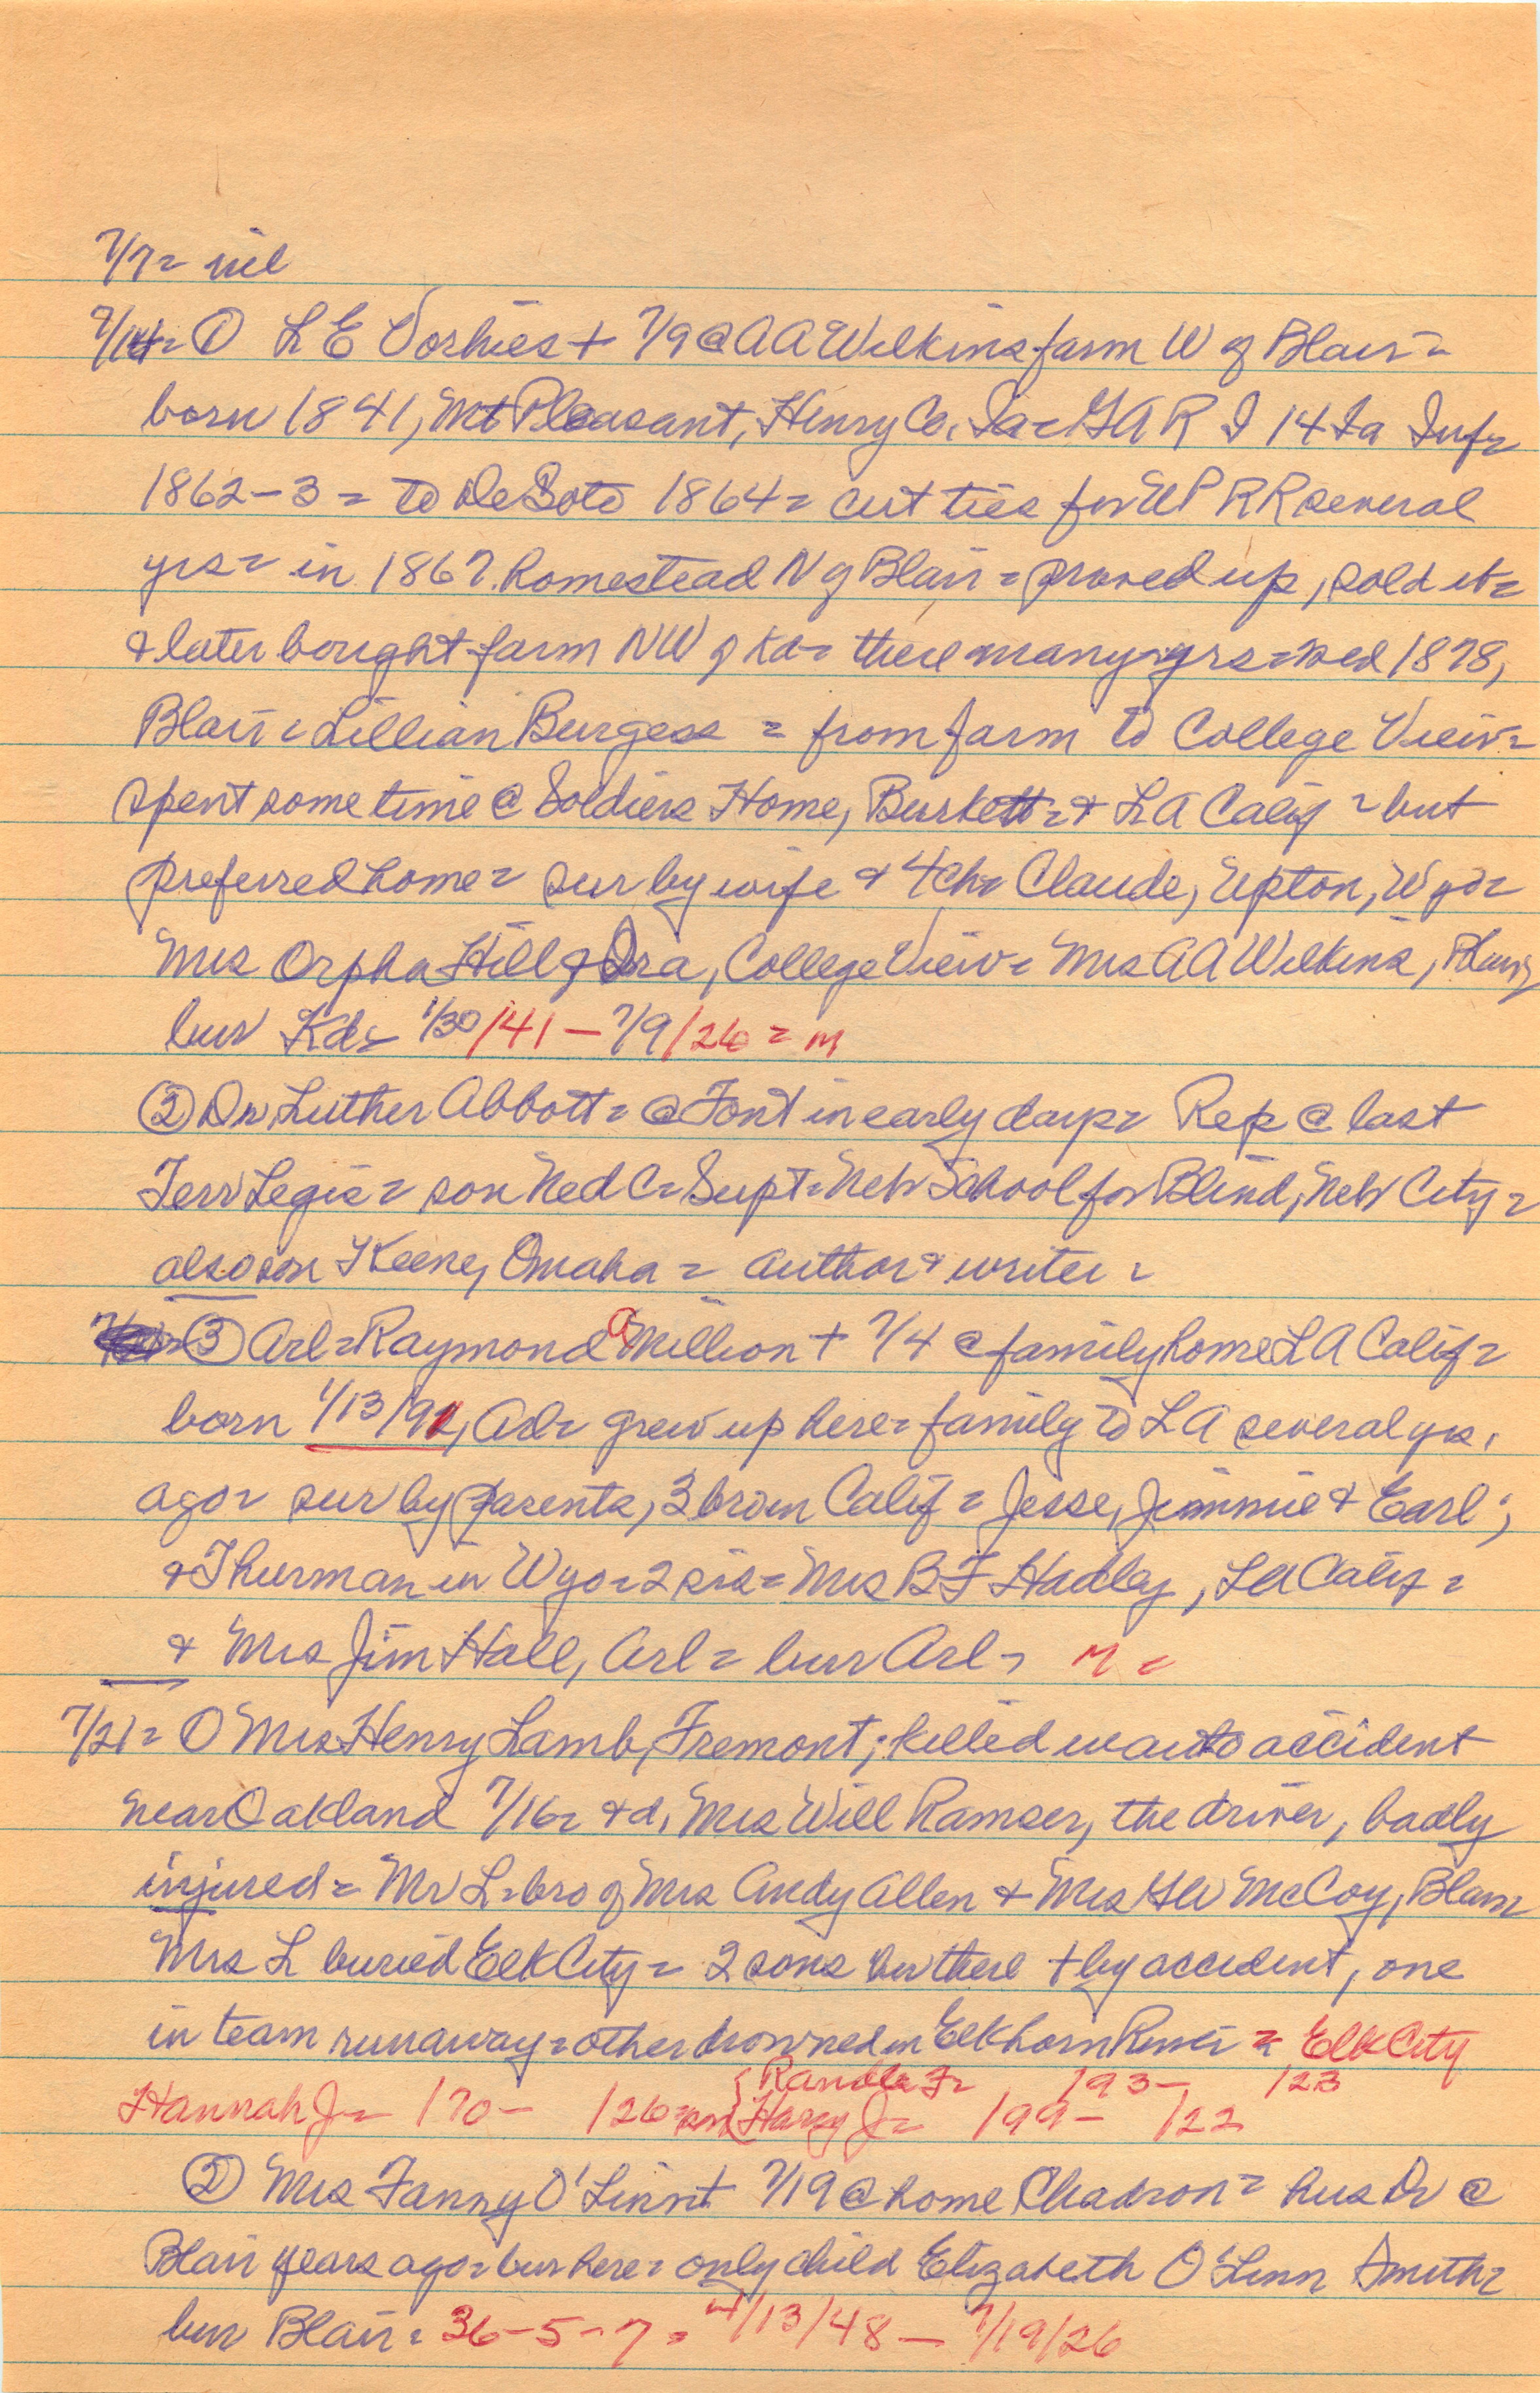 7/7 = nil
7/14 = ① L E Vorhies + 7/9 @ A A Wilkins farm W of Blair =
born 1841, Mt Pleasant, Henry Co. Ia = GAR I 14 Ia Inf =
1862-3 = to DeSoto 1864 = cut ties for UP RR several
yrs = in 1867 homestead N of Blair = proved up, sold it =
& later bought farm NW of Kd = there many yrs = wed 1878,
Blair = Lillian Burgess = from farm to College View =
spent some time @ Soldiers Home, Burkett = & LA Calif = but
preferred home = sur by wife & 4 ch = Claude, Upton, Wyo =
Mrs Orpha Hill & Ora, College View = Mrs A A Wilkins, Blair
bur Kd = 1/30/41 - 7/9/26 = m
② Dr Luther Abbott = @ Font in early days = Rep @ last
Terr Legis = son Ned C = Supt = Neb School for Blind, Neb City =
also son Keene, Omaha = author & writer =
③ Arl = Raymond A Million + 7/4 @ family home LA Calif =
born 1/13/91, Arl = grew up here = family to LA several yrs.
ago = sur by parents, 3 bro in Calif = Jesse, Jimmie & Earl;
& Thurman in Wyo = 2 sis = Mrs B F Hadley, LA Calif =
& Mrs Jim Hall, Arl = bur Arl = M =
7/21 = ① Mrs Henry Lamb, Fremont; killed in auto accident
near Oakland 7/16 = & d. Mrs Will Ramser, the driver, badly
injured = Mr L = bro of Mrs Andy Allen & Mrs McCoy, Blair
Mrs L buried Elk City = 2 sons bur there + by accident, one
in team runaway = other drowned in Elkhorn River = Elk City
{Randle F = /93 - /23
Hannah J = /70 - /26 = son {Harry J = /99 - /22
② Mrs Fanny O'Linn + 7/19 @ home Chadron = hus Dr @
Blair years ago = bur here = only child Elizabeth O'Linn Smith =
bur Blair = 36-5-7 = 4/13/48 - 7/19/26